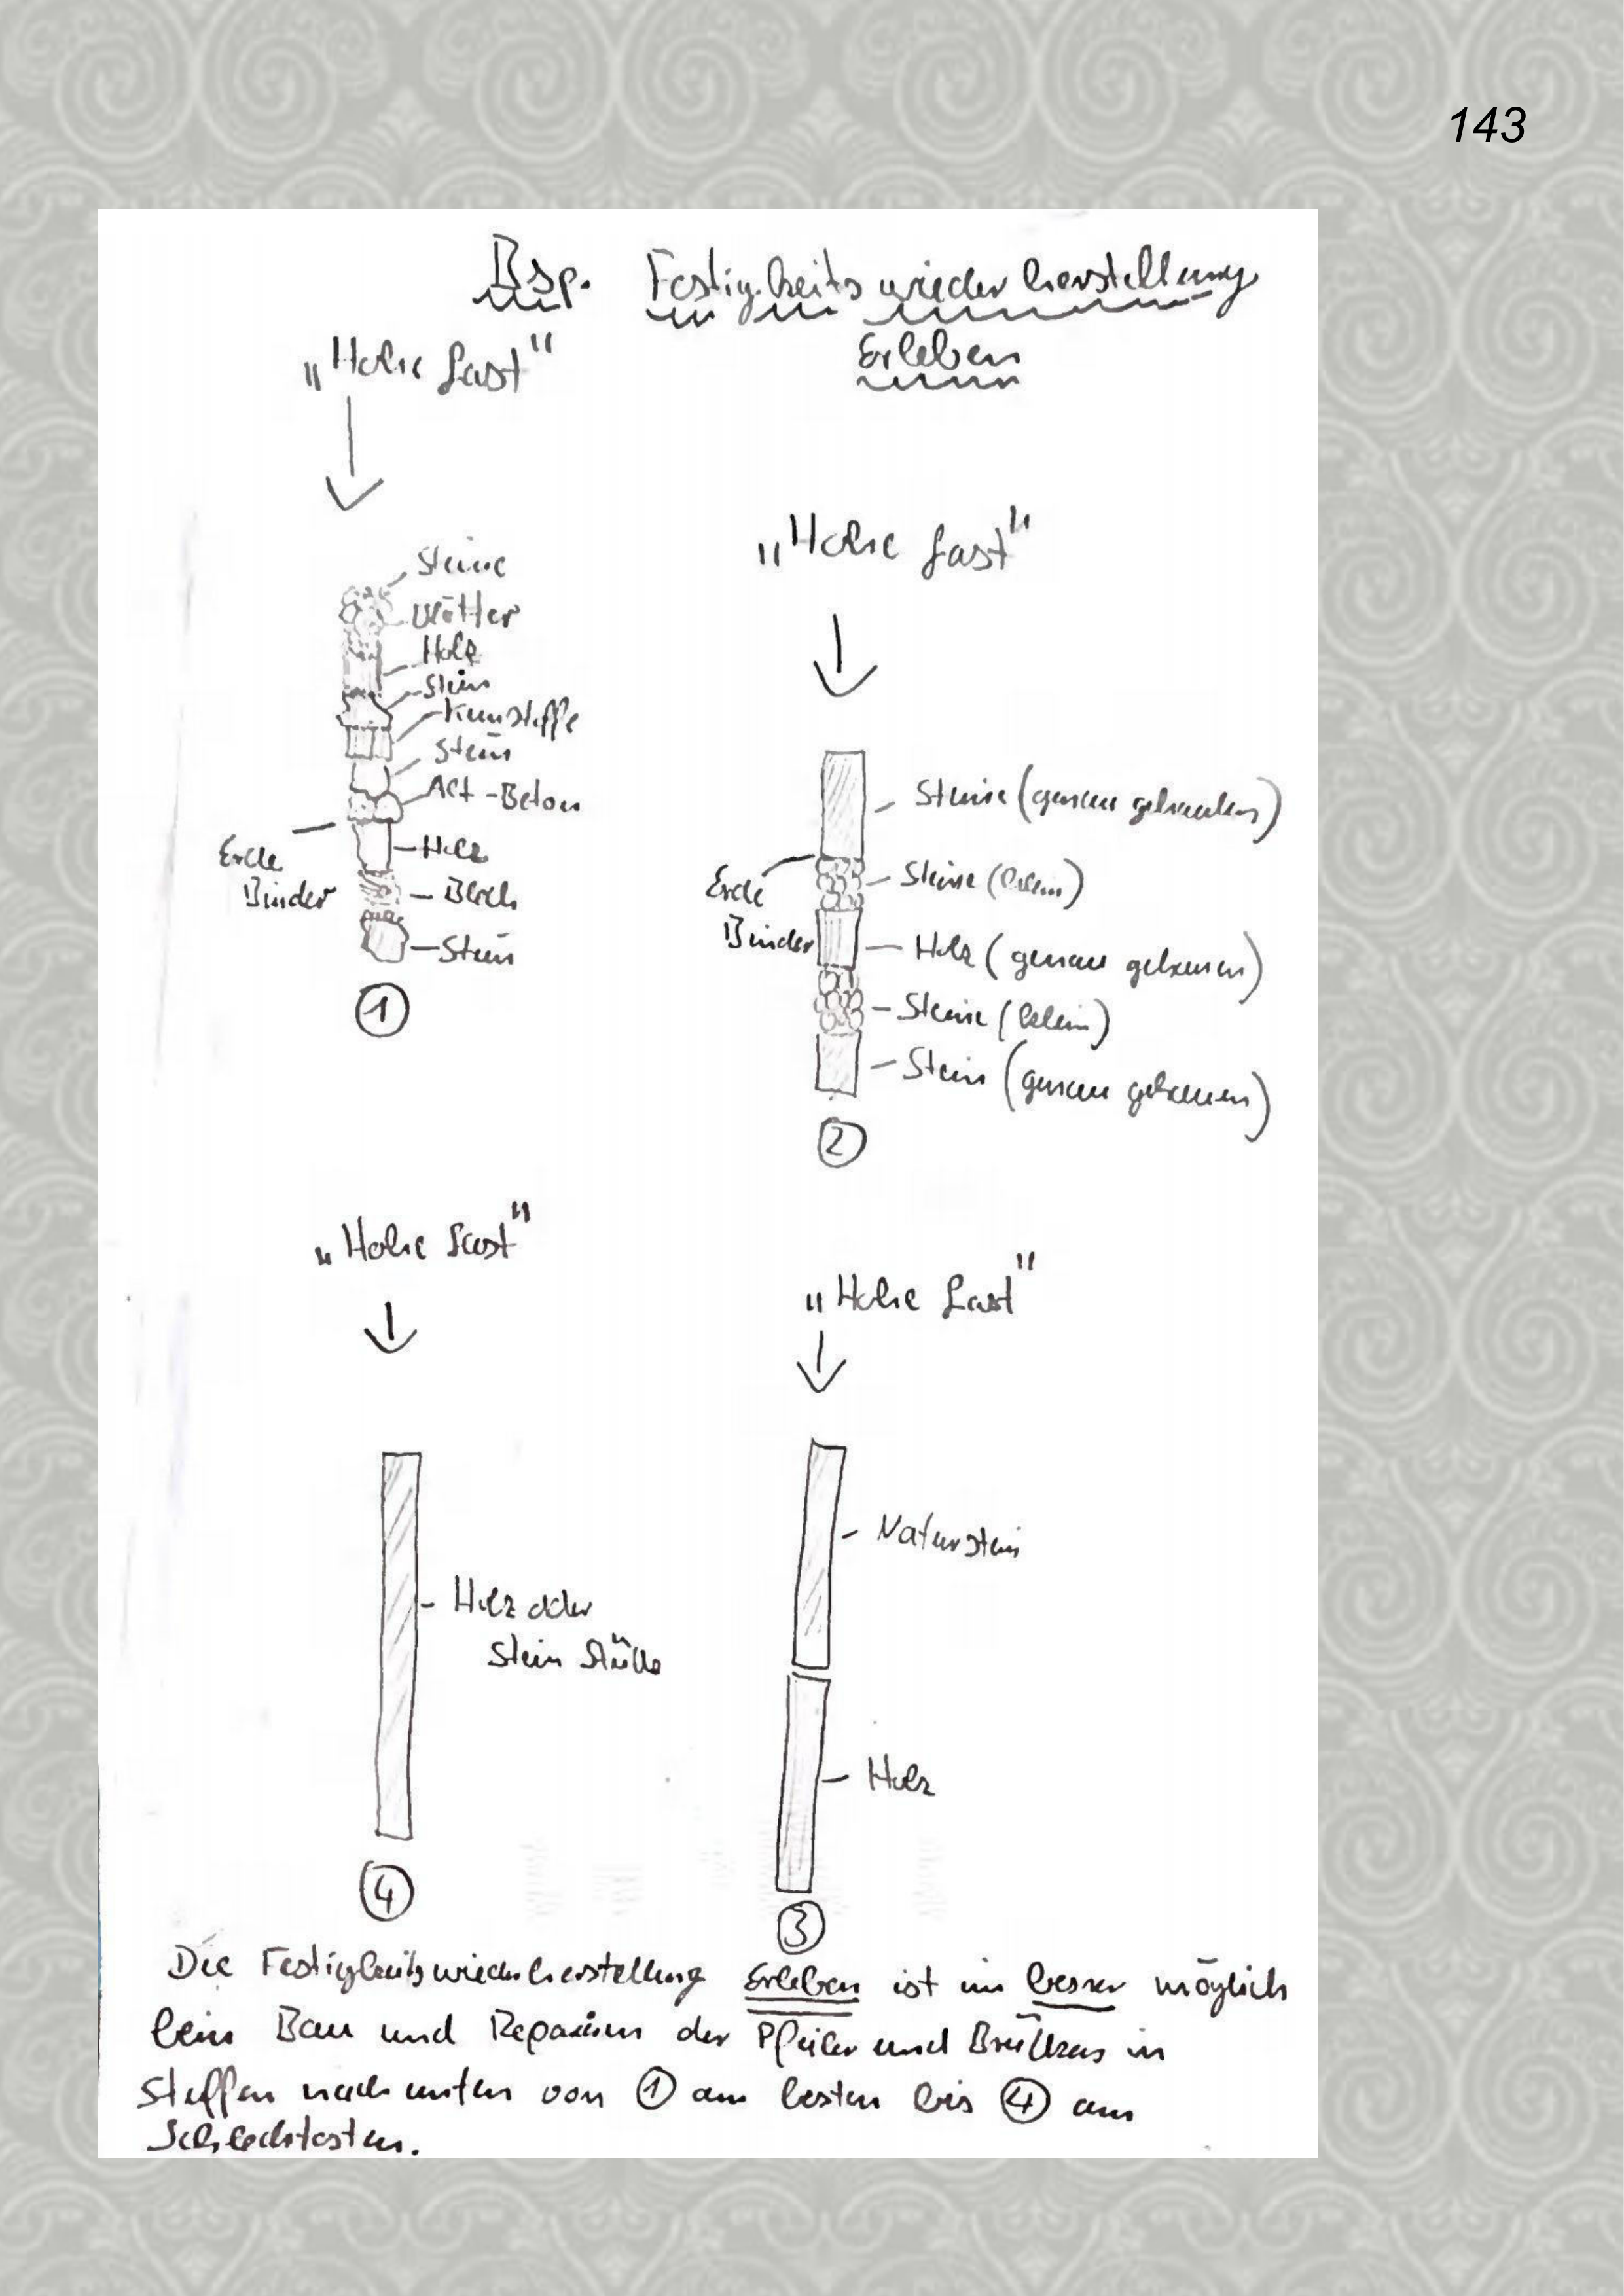 143
Bsp. Festigkeitswiederherstellung
Erleben
„Hohe Last"
Steine
Blätter
Holz
Stein
Kunstoffe
Stein
Alt-Beton
Erde
Binder
Holz
Blech
Stein
1
„Hohe Last"
Steine (genau gehauen)
Steine (klein)
Erde
Binder
Holz (genau gehauen)
Steine (klein)
Stein (genau gehauen)
2
„Hohe Last"
Holz oder
Stein
4
„Hohe Last"
Naturstein
Holz
3
Die Festigkeitswiederherstellung Erleben ist im besser möglich
beim Bau und der Pfeiler und in
nach unten von 1 am besten bis 4 am
Schlechtesten.